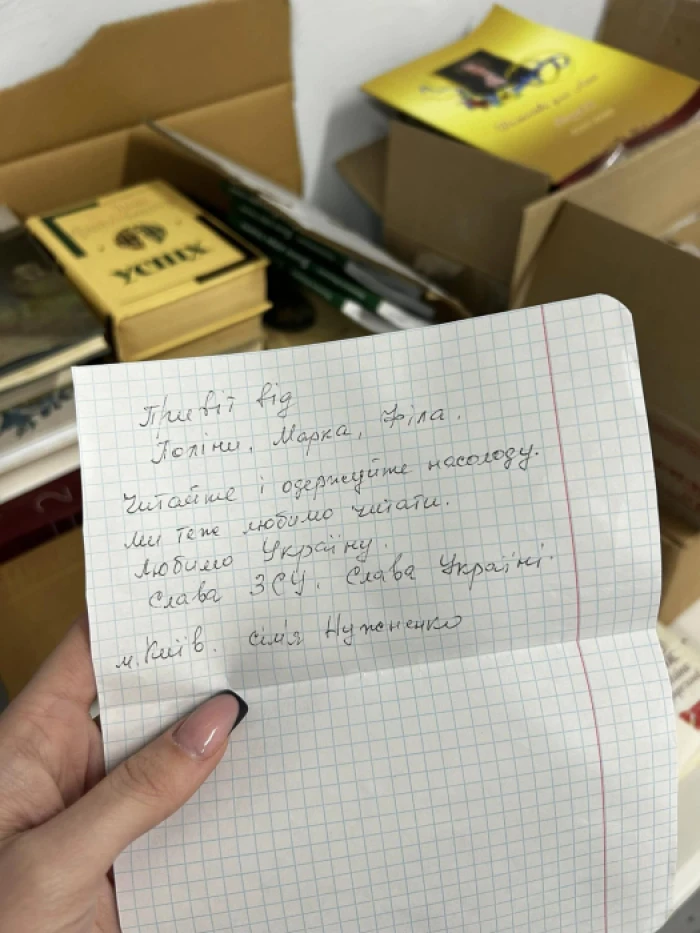 УСПІХ
Привіт від
Поліни, Марка, Філа.
Читайте і одержуйте насолоду.
Ми теж любимо читати.
Любимо Україну.
Слава ЗСУ. Слава Україні.
м. Київ. сім'я Нужненко